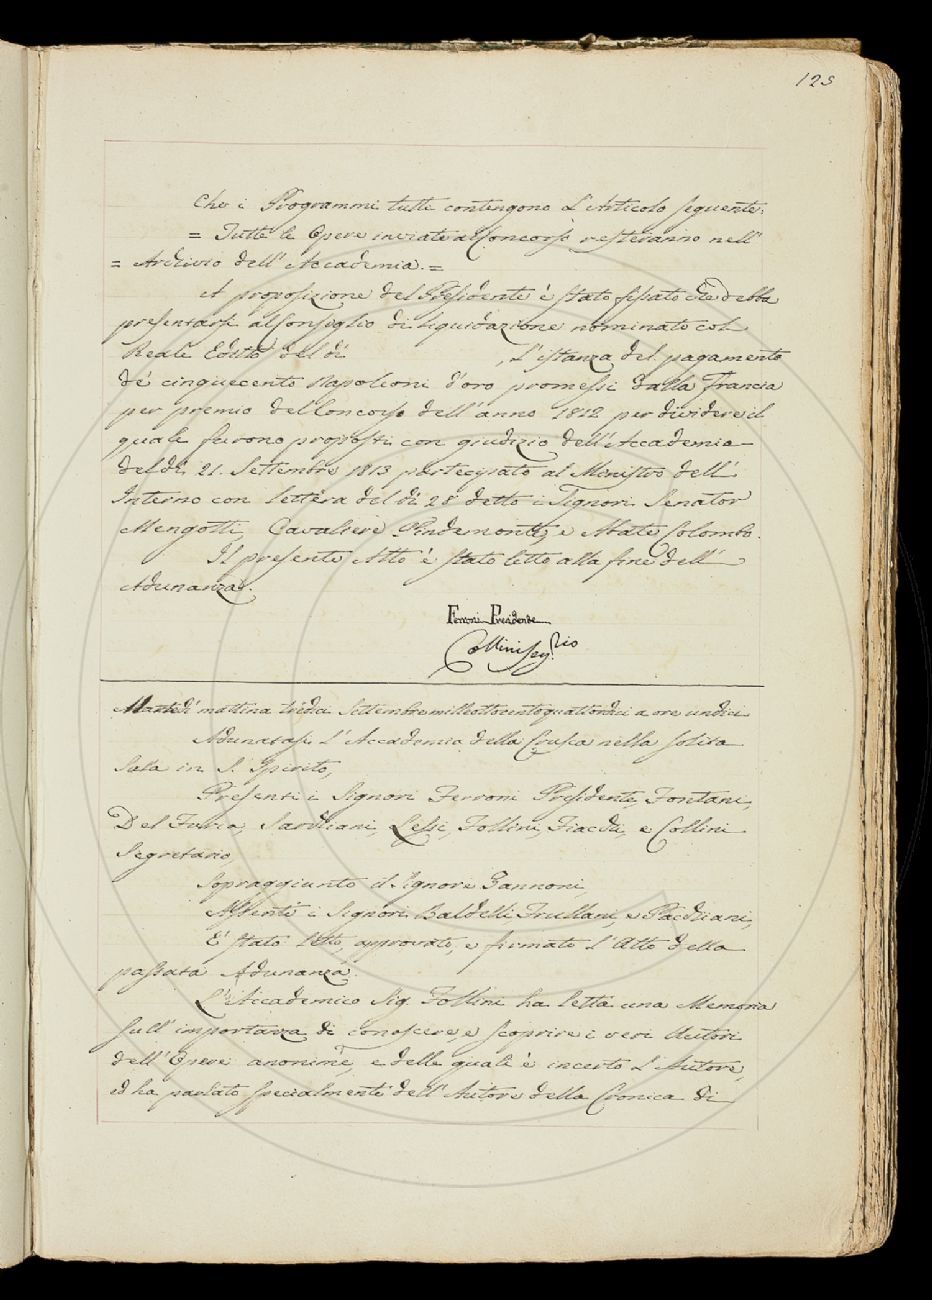 125
che i Programmi tutti contengono l'Articolo seguente:
= Tutte le Opere inviate al Concorso resteranno nell'
= Archivio dell'Accademia.=
A proposizione del Presidente è stato fissato che debba
presentarsi al Consiglio di liquidazione nominato col
Reale Editto del dì , l'istanza del pagamento
de' cinquecento Napoleoni d'oro promessi dalla Francia
per premio del Concorso dell'anno 1812 per dividere il
quale furono proposti con giudizio dell'Accademia
del dì 21. Settembre 1813 partecipato al Ministro dell'
Interno con lettera del dì 28 detto i Signori Senator
Mengotti, Cavaliere Pindemonte, e Abate Colombo.
Il presente Atto è stato letto alla fine dell'
Adunanza.
Ferroni Presidente
Collini Seg.rio
Martedì mattina tredici Settembre milleottocentoquattordici a ore undici
Adunatasi l'Accademia della Crusca nella solita
Sala in S. Spirito,
Presenti i Signori Ferroni Presidente, Fontani,
Del Furia, Sarchiani, Lessi, Follini, Fiacchi, e Collini
Segretario,
Sopraggiunto il Signore Zannoni,
Assenti i Signori Baldelli, Frullani, e Pacchiani,
È stato letto, approvato, e firmato l'Atto della
passata Adunanza.
L'Accademico Sig. Follini ha letta una Memoria
sull'importanza di conoscere, e scoprire i veri Autori
dell'Opere anonime, e delle quali è incerto l'Autore,
ed ha parlato specialmente dell'Autore della Cronica di